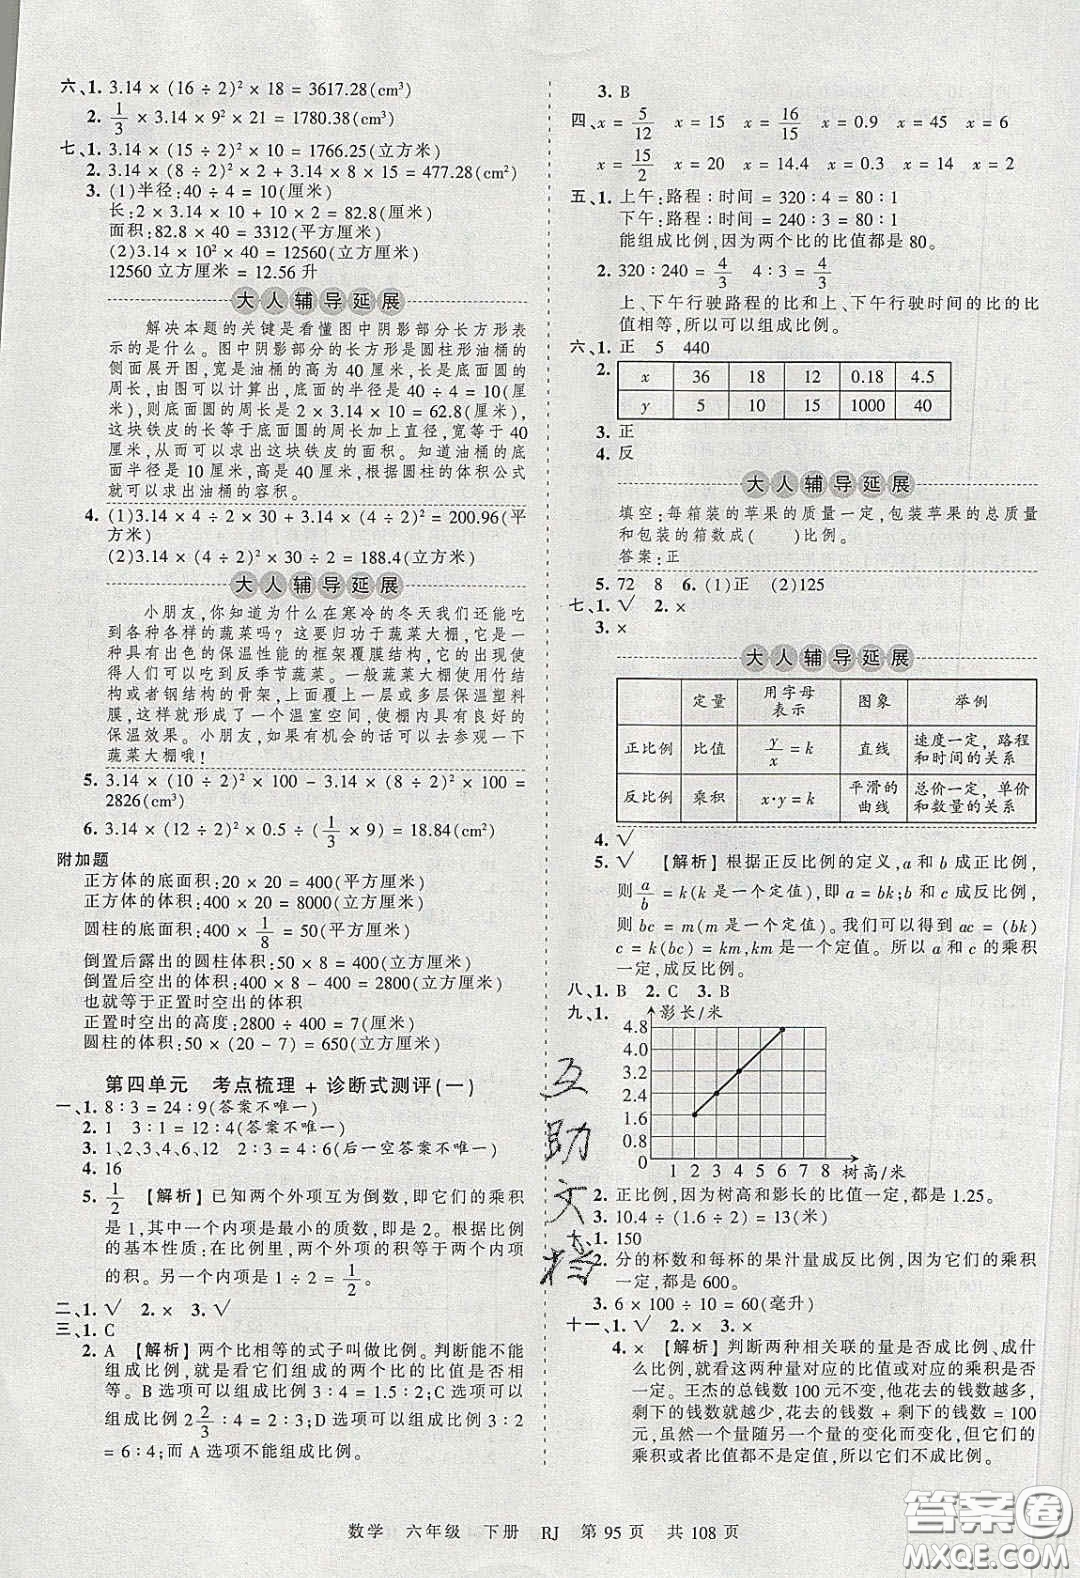 六、1. 3.14 × (16 ÷ 2)² × 18 = 3617.28(cm³)
2. 1/3 × 3.14 × 9² × 21 = 1780.38(cm³)
七、1. 3.14 × (15 ÷ 2)² × 10 = 1766.25(立方厘米)
2. 3.14 × (8 ÷ 2)² × 2 + 3.14 × 8 × 15 = 477.28(cm²)
3. (1)半径:40 ÷ 4 = 10(厘米)
长:2 × 3.14 × 10 + 10 × 2 = 82.8(厘米)
面积:82.8 × 40 = 3312(平方厘米)
(2)3.14 × 10² × 40 = 12560(立方厘米)
12560 立方厘米 = 12.56 升
大人辅导延展
解决本题的关键是看懂图中阴影部分长方形表
示的是什么。图中阴影部分的长方形是圆柱形油桶的
侧面展开图,宽是油桶的高为 40 厘米,长是底面圆的
周长,由图可以计算出,底面的半径是 40 ÷ 4 = 10(厘
米),则底面圆的周长是 2 × 3.14 × 10 = 62.8(厘米),
这块铁皮的长等于底面圆的周长加上直径,宽等于 40
厘米,从而可以求出这块铁皮的面积。知道油桶的底
面半径是 10 厘米,高是 40 厘米,根据圆柱的体积公式
就可以求出油桶的容积。
4. (1)3.14 × 4 ÷ 2 × 30 + 3.14 × (4 ÷ 2)² = 200.96(平
方米)
(2)3.14 × (4 ÷ 2)² × 30 ÷ 2 = 188.4(立方米)
大人辅导延展
小朋友,你知道为什么在寒冷的冬天我们还能吃
到各种各样的蔬菜吗？这要归功于蔬菜大棚,它是一
种具有出色的保温性能的框架覆膜结构,它的出现使
得人们可以吃到反季节蔬菜。一般蔬菜大棚使用竹结
构或者钢结构的骨架,上面覆上一层或多层保温塑料
膜,这样就形成了一个温室空间,使棚内具有良好的
保温效果。小朋友,如果有机会的话可以去参观一下
蔬菜大棚哦！
5. 3.14 × (10 ÷ 2)² × 100 - 3.14 × (8 ÷ 2)² × 100 =
2826(cm³)
6. 3.14 × (12 ÷ 2)² × 0.5 ÷ (1/3 × 9) = 18.84(cm²)
附加题
正方体的底面积:20 × 20 = 400(平方厘米)
正方体的体积:400 × 20 = 8000(立方厘米)
圆柱的底面积:400 × 1/8 = 50(平方厘米)
倒置后露出的圆柱体积:50 × 8 = 400(立方厘米)
倒置后空出的体积:400 × 8 - 400 = 2800(立方厘米)
也就等于正置时空出的体积
正置时空出的高度:2800 ÷ 400 = 7(厘米)
圆柱的体积:50 × (20 - 7) = 650(立方厘米)
第四单元 考点梳理 + 诊断式测评(一)
一、1. 8∶3 = 24∶9(答案不唯一)
2. 1 3∶1 = 12∶4(答案不唯一)
3. 1、2、3、4、6、12 2∶3 = 4∶6(后一空答案不唯一)
4. 16
5. 1/2 【解析】已知两个外项互为倒数,即它们的乘积
是 1,其中一个内项是最小的质数,即是 2。根据比例
的基本性质:在比例里,两个外项的积等于两个内项
的积。另一个内项是 1 ÷ 2 = 1/2。
二、1. √ 2. × 3. √
三、1. C
2. A 【解析】两个比相等的式子叫做比例。判断能不能
组成比例,就是看它们组成的两个比的比值是否相
等。B 选项可以组成比例 3∶4 = 1.5∶2;C 选项可以
组成比例 2 2/3∶4 = 2∶3;D 选项可以组成比例 3∶2
= 6∶4;而 A 选项不能组成比例。
3. B
四、x = 5/12 x = 15 x = 16/15 x = 0.9 x = 45 x = 6
x = 15/2 x = 20 x = 14.4 x = 0.3 x = 14 x = 2
五、1. 上午:路程∶时间 = 320∶4 = 80∶1
下午:路程∶时间 = 240∶3 = 80∶1
能组成比例,因为两个比的比值都是 80。
2. 320∶240 = 4/3 4∶3 = 4/3
上、下午行驶路程的比和上、下午行驶时间的比的比
值相等,所以可以组成比例。
六、1. 正 5 440
2. x 36 18 12 0.18 4.5
y 5 10 15 1000 40
3. 正
4. 反
大人辅导延展
填空:每箱装的苹果的质量一定,包装苹果的总质量
和包装的箱数成( )比例。
答案:正
5. 72 8 6. (1)正 (2)125
七、1. √ 2. ×
3. ×
大人辅导延展
定量 用字母表示 图象 举例
正比例 比值 y/x = k 直线 速度一定,路程和时间的关系
反比例 乘积 x·y = k 平滑的曲线 总价一定,单价和数量的关系
4. √
5. √ 【解析】根据正反比例的定义,a 和 b 成正比例,
则 a/b = k(k 是一个定值),即 a = bk;b 和 c 成反比例,
则 bc = m(m 是一个定值)。我们可以得到 ac = (bk)
c = k(bc) = km,km 是一个定值。所以 a 和 c 的乘积
一定,成反比例。
八、1. B 2. C 3. B
九、1. 影长/米
4.8
4.0
3.2
2.4
1.6
0.8
0 1 2 3 4 5 6 7 8 树高/米
2. 正比例,因为树高和影长的比值一定,都是 1.25。
3. 10.4 ÷ (1.6 ÷ 2) = 13(米)
十、1. 150
2. 分的杯数和每杯的果汁量成反比例,因为它们的乘积
一定,都是 600。
3. 6 × 100 ÷ 10 = 60(毫升)
十一、1. √ 2. × 3. ×
4. × 【解析】判断两种相关联的量是否成比例、成什
么比例,就看这两种量对应的比值或对应的乘积是否
一定。王杰的总钱数 100 元不变,他花去的钱越多,
剩下的钱数就越少,花去的钱 + 剩下的钱数 = 100
元,虽然一个量随另一个量的变化而变化,但它们的
乘积或者比值都不是定值,所以它们不成比例。
互助文档
数学 六年级 下册 RJ 第 95 页 共 108 页
答案圈
MXQE.COM